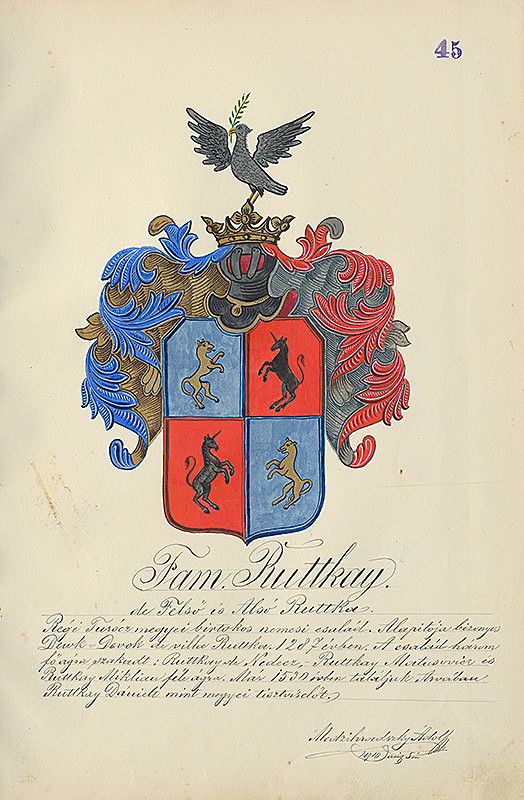 45
Fam. Ruttkay.
de Felső és Alsó Ruttka.
Régi Turócz megyei birtokos nemesi család. Alapitója bizonyos
Devk-Davok de villa Ruttka. 1287 évben. A család három
főágra szakadt: Ruttkay de Nedecz, - Ruttkay Matusovicz és
Ruttkay Miklian féle ágra. Már 1530 évben találjuk Árvában
Ruttkay Dánielt mint megyei tisztviselőt.
Adolf
1910